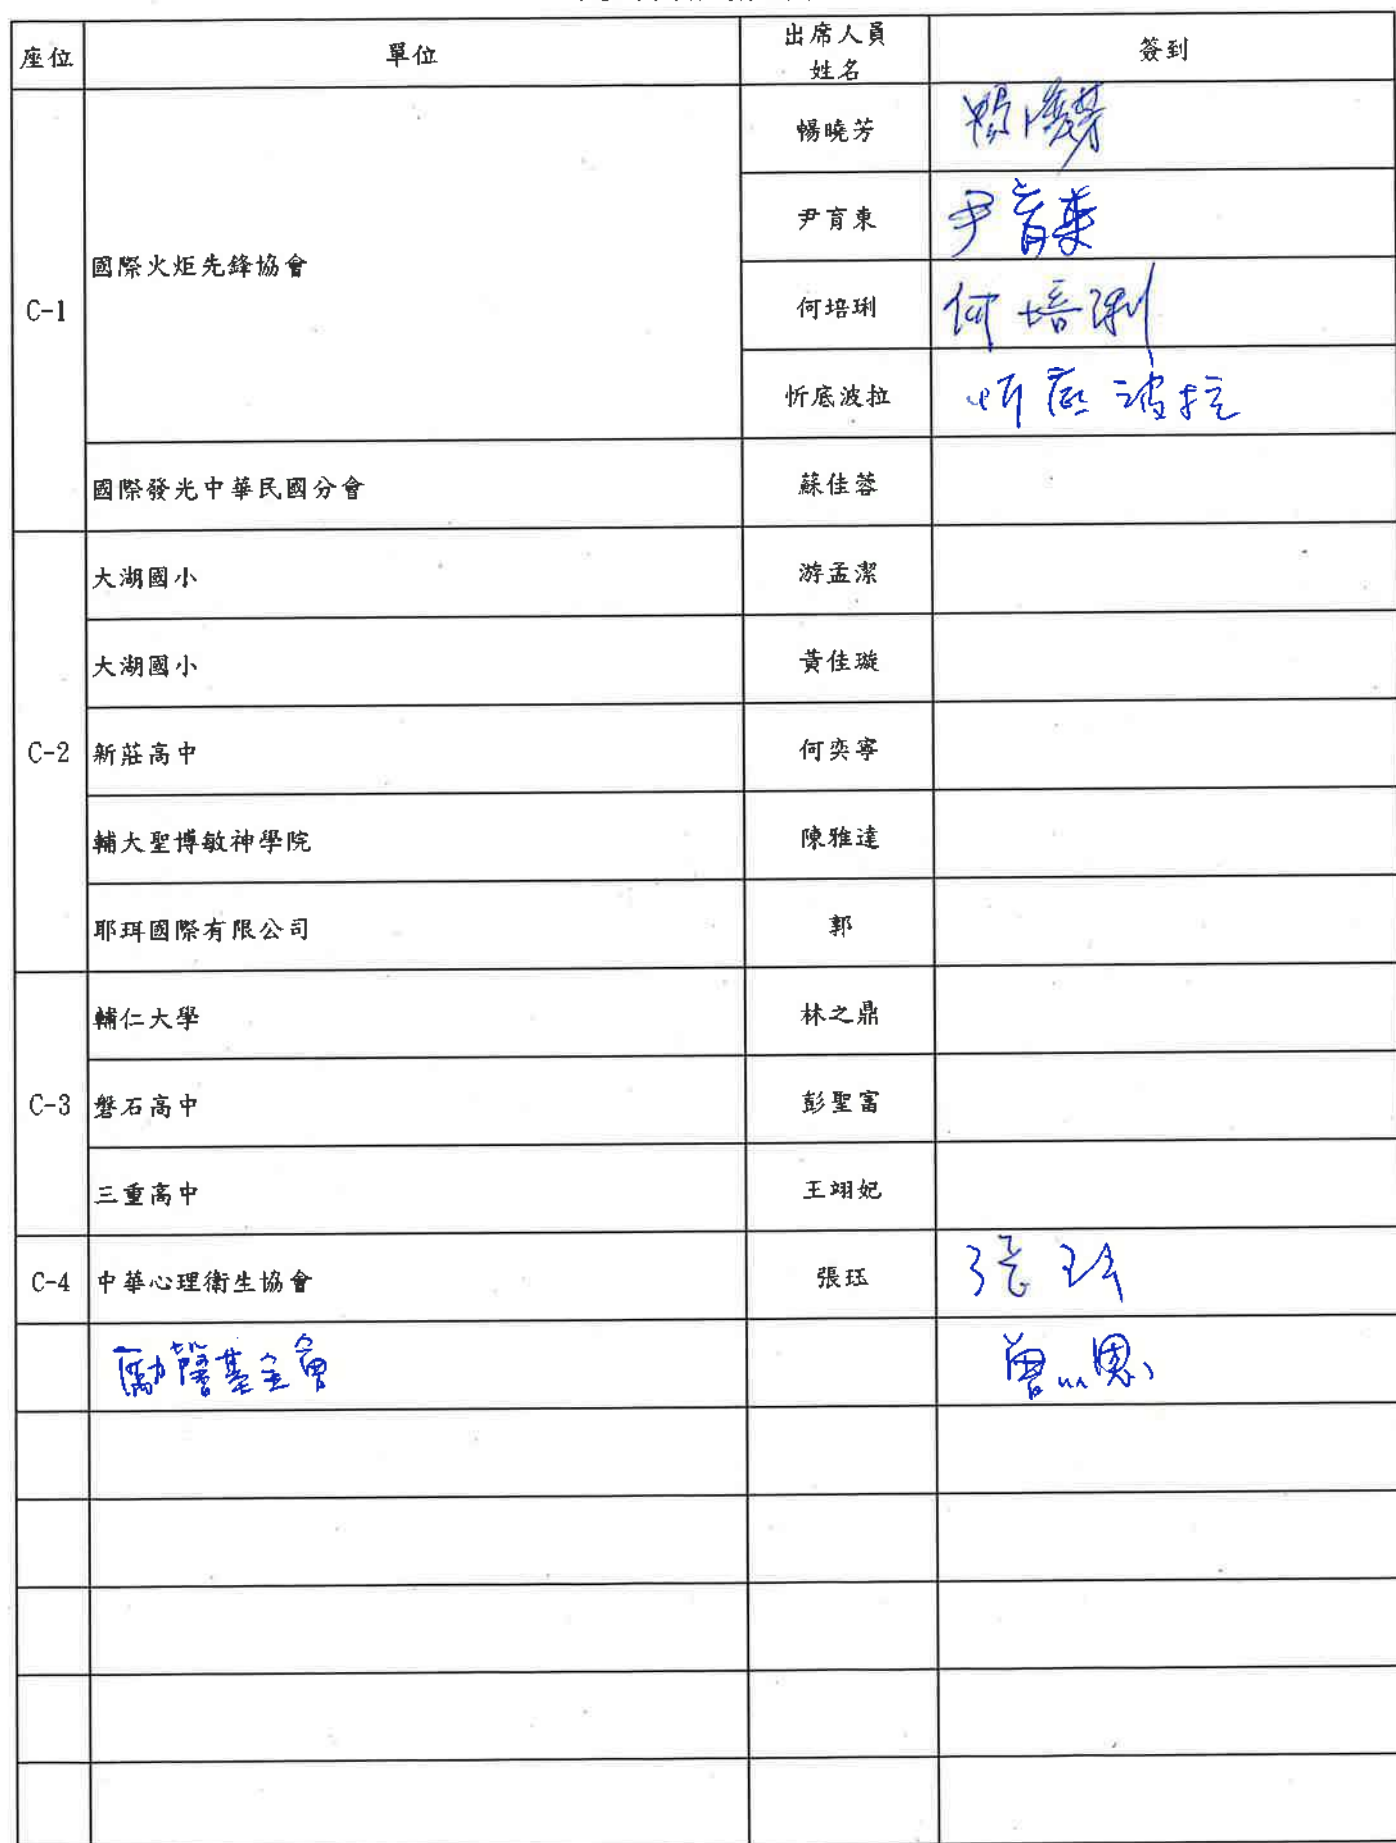 座位 單位 出席人員姓名 簽到
C-1 國際火炬先鋒協會 暢曉芳 暢曉芳
尹育東 尹育東
何培琍 何培琍
忻底波拉 忻底波拉
國際發光中華民國分會 蘇佳蓉
C-2 大湖國小 游孟潔
大湖國小 黃佳璇
新莊高中 何奕寧
輔大聖博敏神學院 陳雅達
耶珥國際有限公司 郭
C-3 輔仁大學 林之鼎
磐石高中 彭聖富
三重高中 王翊妃
C-4 中華心理衛生協會 張珏 張珏
勵馨基金會 曾